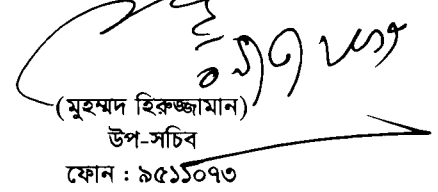 (মুহম্মদ হিরুজ্জামান)
উপ-সচিব
ফোন : ৯৫১১০৭৩